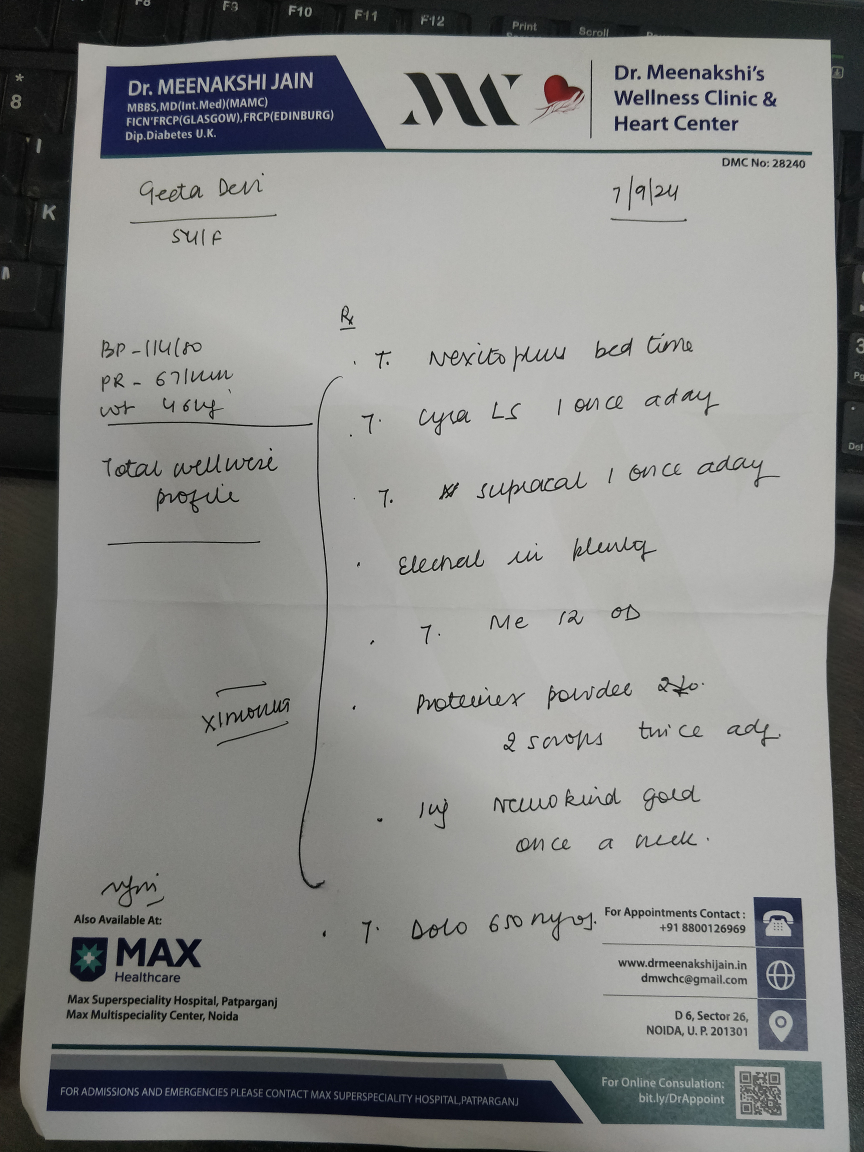 F8 F9 F10 F11 F12 Print Scroll
*
8
K
Dr. MEENAKSHI JAIN
MBBS,MD(Int.Med)(MAMC)
FICN'FRCP(GLASGOW),FRCP(EDINBURG)
Dip.Diabetes U.K.
Dr. Meenakshi's
Wellness Clinic &
Heart Center
DMC No: 28240
Geeta Devi
54/F
7/9/24
Rx
BP - 114/80
PR - 67/min
wt 46kg
Total wellness
profile
x1month
. T. Nexito plus bed time
. T. Cyra LS 1 once a day
. T. supracal 1 once a day
. Electral in plenty
. T. Me 12 OD
. Proteinex powder
2 scoops twice a day
. Inj Neurokind gold
once a week.
. T. Dolo 650 mg SOS.
Also Available At:
MAX
Healthcare
Max Superspeciality Hospital, Patparganj
Max Multispeciality Center, Noida
For Appointments Contact :
+91 8800126969
www.drmeenakshijain.in
dmwchc@gmail.com
D 6, Sector 26,
NOIDA, U. P. 201301
FOR ADMISSIONS AND EMERGENCIES PLEASE CONTACT MAX SUPERSPECIALITY HOSPITAL,PATPARGANJ
For Online Consulation:
bit.ly/DrAppoint